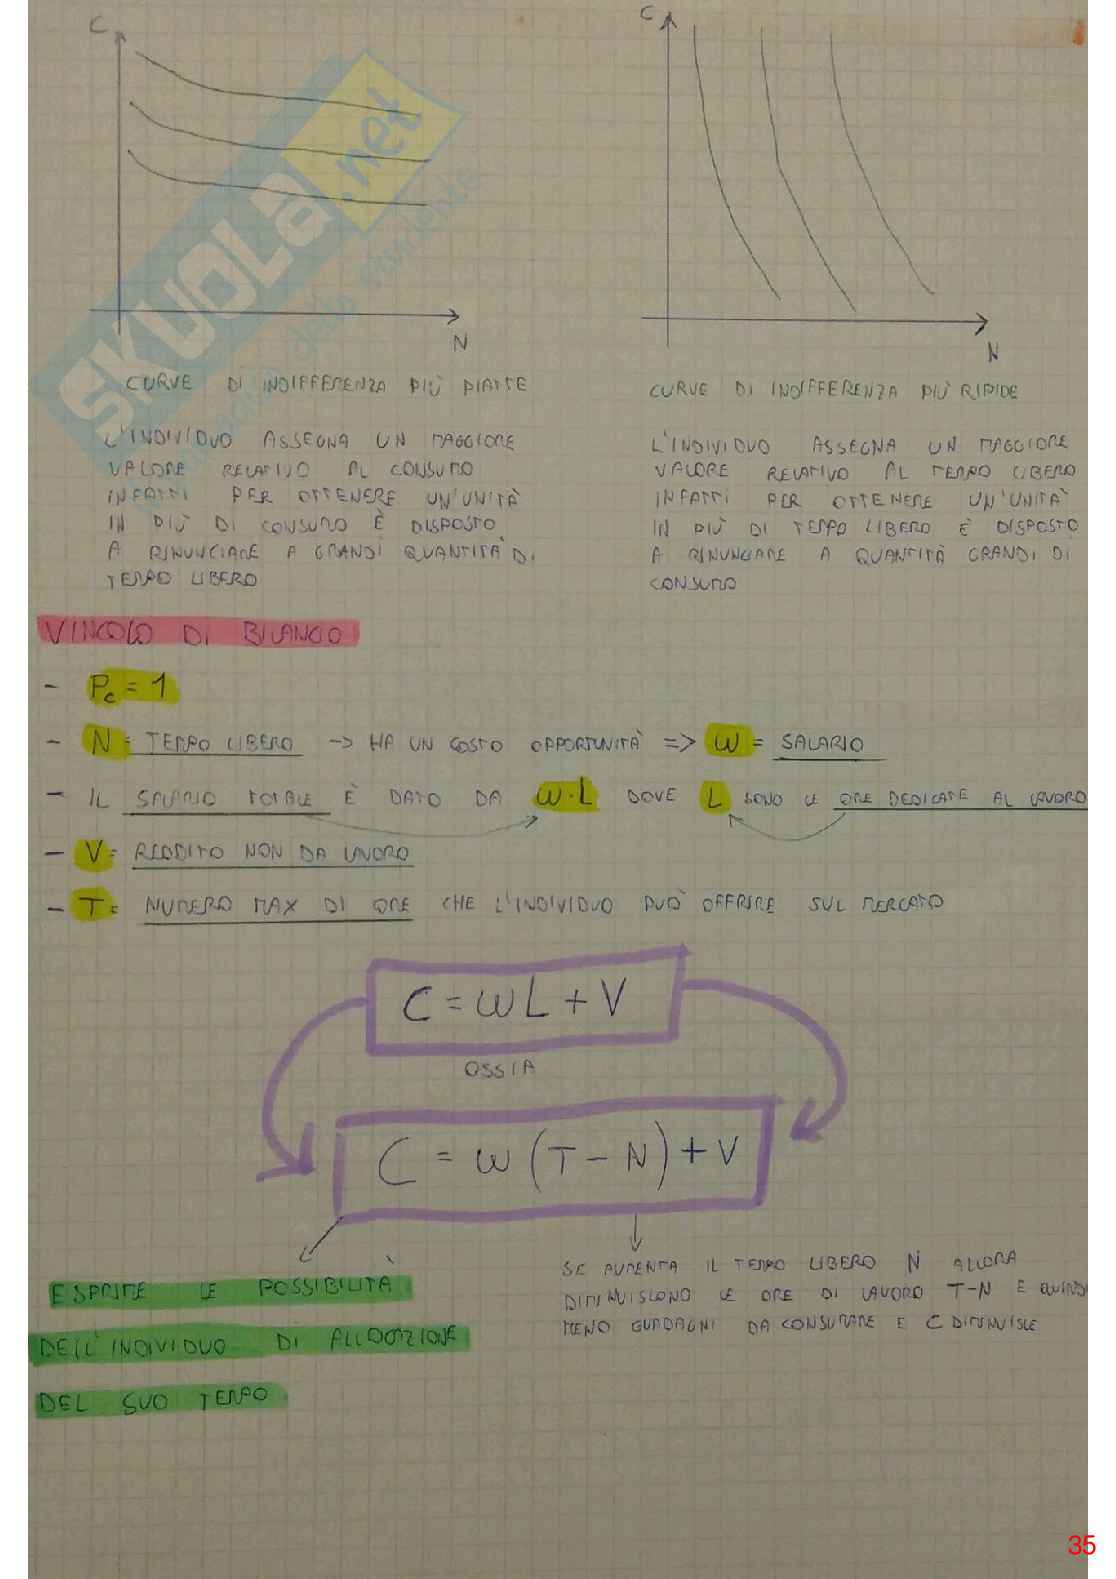 C
C
N
N
CURVE DI INDIFFERENZA PIÙ PIATTE
CURVE DI INDIFFERENZA PIÙ RIPIDE
L'INDIVIDUO ASSEGNA UN MAGGIORE
VALORE RELATIVO AL CONSUMO
INFATTI PER OTTENERE UN'UNITÀ
IN PIÙ DI CONSUMO È DISPOSTO
A RINUNCIARE A GRANDI QUANTITÀ DI
TEMPO LIBERO
L'INDIVIDUO ASSEGNA UN MAGGIORE
VALORE RELATIVO AL TEMPO LIBERO
INFATTI PER OTTENERE UN'UNITÀ
IN PIÙ DI TEMPO LIBERO È DISPOSTO
A RINUNCIARE A QUANTITÀ GRANDI DI
CONSUMO
VINCOLO DI BILANCIO
- Pc = 1
- N = TEMPO LIBERO -> HA UN COSTO OPPORTUNITÀ => W = SALARIO
- IL SALARIO TOTALE È DATO DA W·L DOVE L SONO LE ORE DEDICATE AL LAVORO
- V = REDDITO NON DA LAVORO
- T = NUMERO MAX DI ORE CHE L'INDIVIDUO PUÒ OFFRIRE SUL MERCATO
C = WL + V
OSSIA
C = W (T - N) + V
ESPRIME LE POSSIBILITÀ
DELL'INDIVIDUO DI ALLOCAZIONE
DEL SUO TEMPO
SE AUMENTA IL TEMPO LIBERO N ALLORA
DIMINUISCONO LE ORE DI LAVORO T-N E QUINDI
MENO GUADAGNI DA CONSUMARE E C DIMINUISCE
SKUOLA.net
35